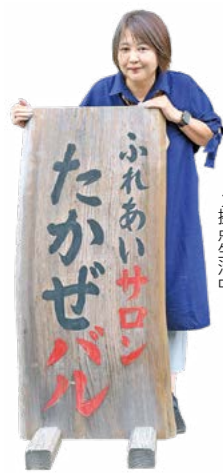 ふれあいサロン
たかぜパル